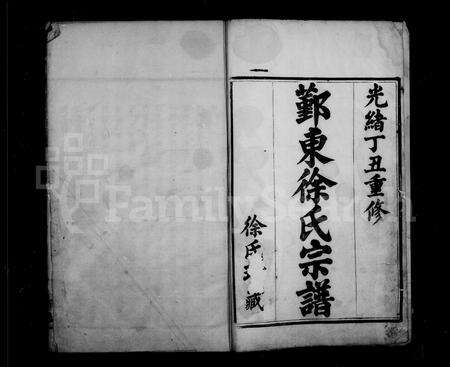 光緒丁丑重修
鄞東徐氏宗譜
徐氏 藏
FamilySearch